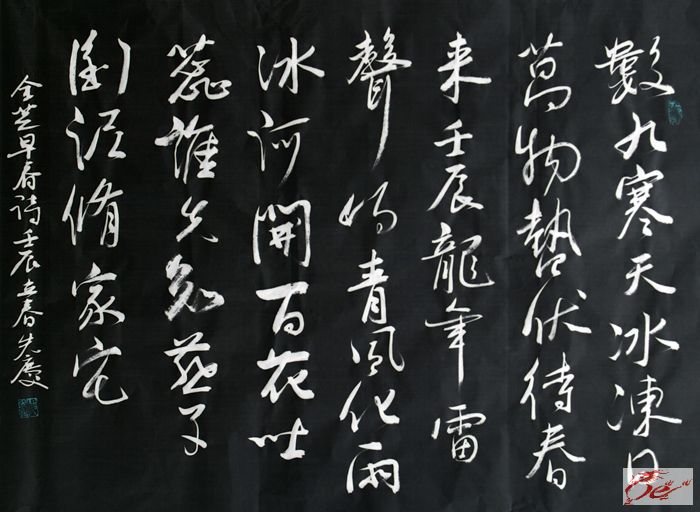 數九寒天冰凍日
萬物蟄伏待春
来壬辰龍年雷
聲鸣青風化雨
冰河開百花吐
蕊誰先知燕子
衔泥脩家宅
早春诗壬辰立春